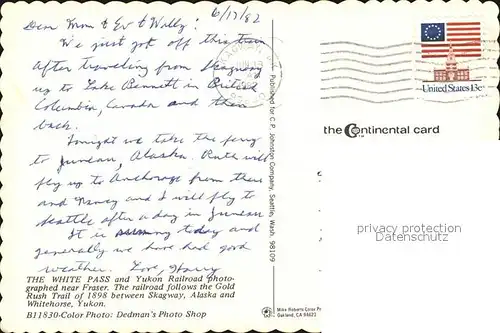 6/17/82
Dear Mom & Ev & Wally:
We just got off this train
after traveling from Skagway
up to Lake Bennett in British
Columbia, Canada and then
back.
Tonight we take the ferry
to Juneau, Alaska. Ruth will
fly up to Anchorage from there
and Nancy and I will fly to
Seattle after a day in Juneau
It is sunny today and
generally we have had good
weather. Love, Harry
THE WHITE PASS and Yukon Railroad photo-
graphed near Fraser. The railroad follows the Gold
Rush Trail of 1898 between Skagway, Alaska and
Whitehorse, Yukon.
B11830-Color Photo: Dedman's Photo Shop
Published for C. P. Johnston Company, Seattle, Wash. 98109
Mike Roberts Color Pr
Oakland, CA 94623
United States 13c
the Continental card
privacy protection